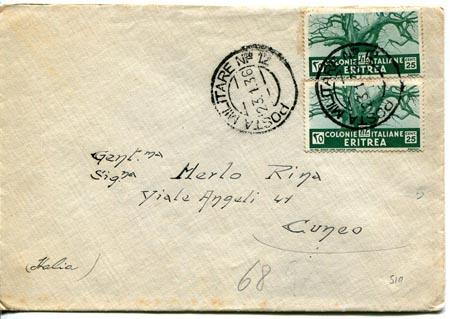 POSTA MILITARE Nº 12
23.1.36
10 COLONIE ITALIANE CENT. 25
ERITREA
10 COLONIE ITALIANE CENT. 25
ERITREA
Gent.ma
Sig.na Merlo Rina
Viale Angeli 41
Cuneo
(Italia)
68
5